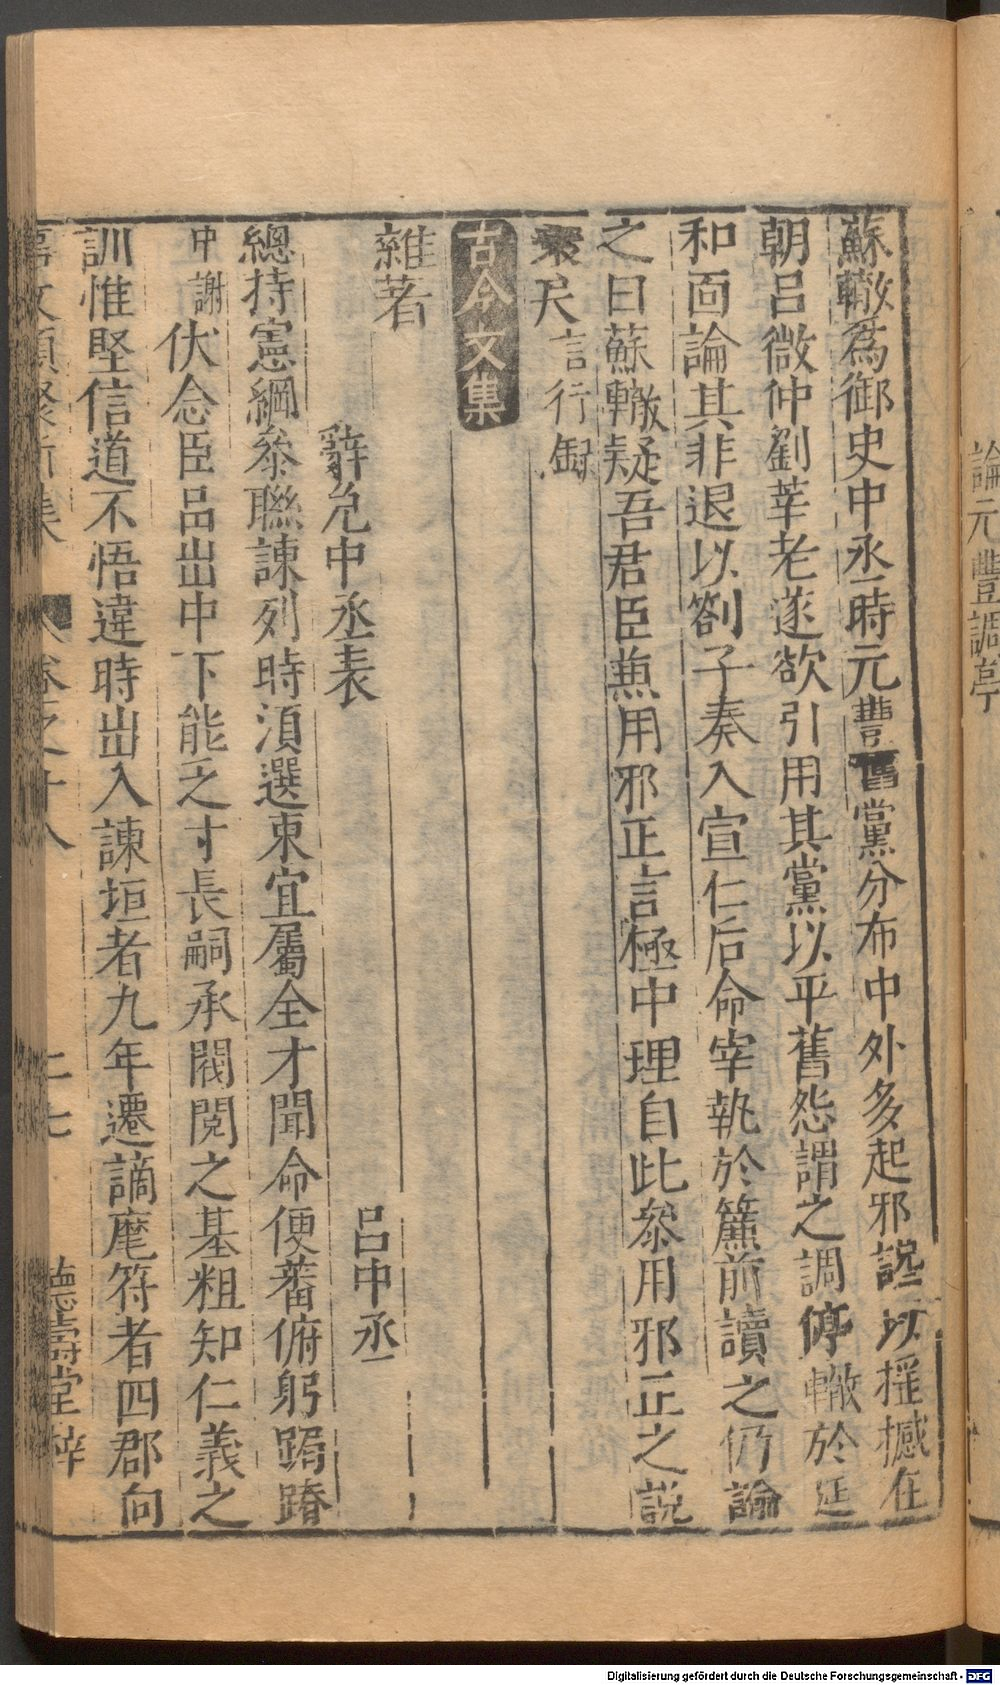 論元豐調亭
蘇轍為御史中丞時元豐舊黨分布中外多起邪說以摇撼在
朝呂微仲劉莘老遂欲引用其黨以平舊怨謂之調停轍於延
和面論其非退以劄子奏入宣仁后命宰執於簾前讀之仍論
之曰蘇轍疑吾君臣蕉用邪正言極中理自此叅用邪正之説
衰矣言行録
古今文集
雜著
辭免中丞表 呂中丞
總持憲綱叅聯諫列時湏選東宜屬全才聞命便蕃俯躬跼蹐
中謝伏念臣品出中下能乏寸長嗣承閥閲之基粗知仁義之
訓惟堅信道不悟違時出入諫垣者九年遷謫麾符者四郡向
卷之十八 二七 德壽堂梓
Digitalisierung gefördert durch die Deutsche Forschungsgemeinschaft - DFG